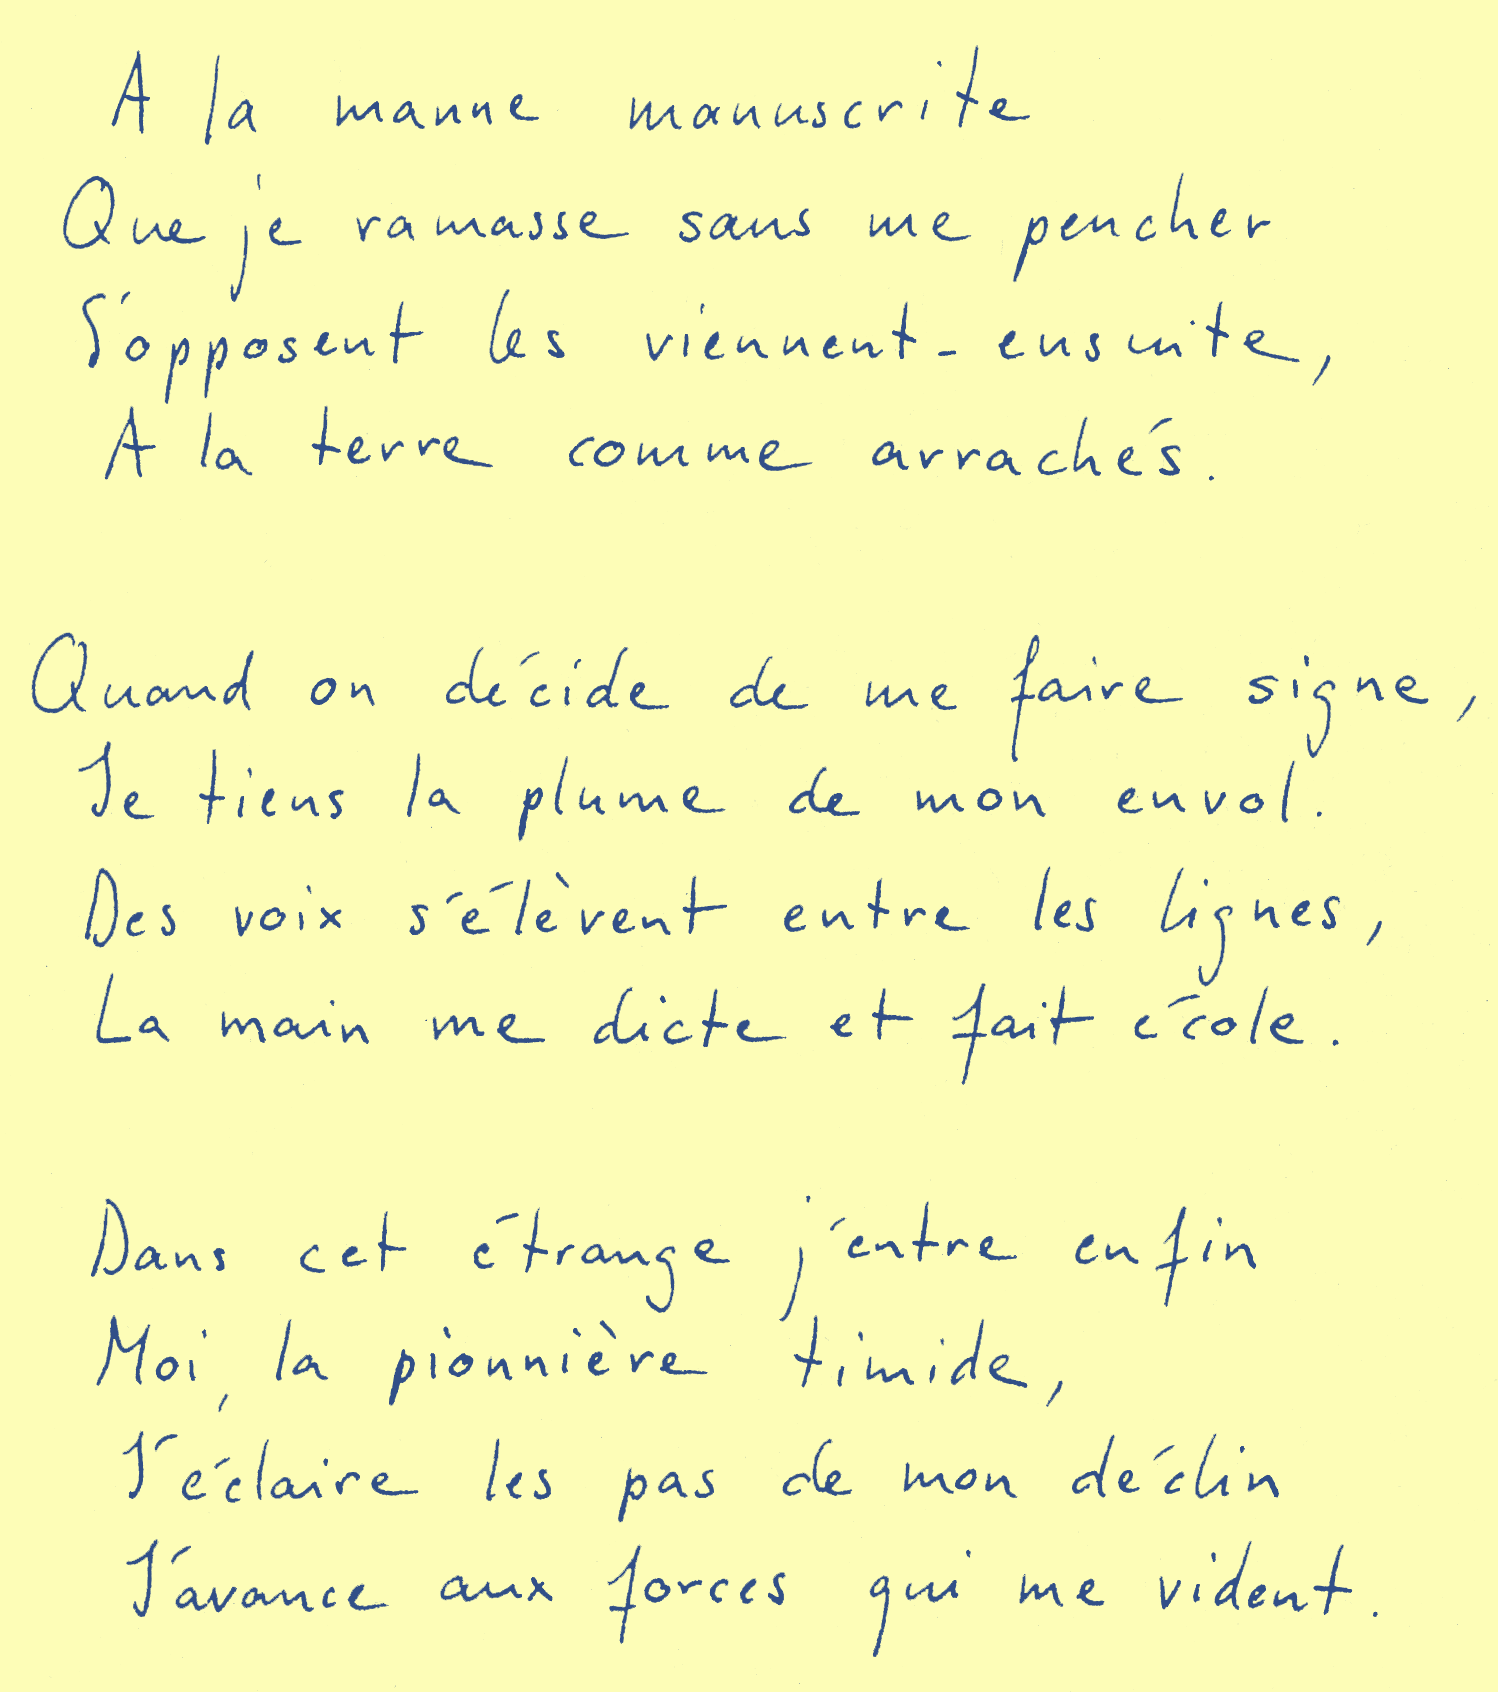 A la manne manuscrite
Que je ramasse sans me pencher
S'opposent les viennent-ensuite,
A la terre comme arrachés.
Quand on décide de me faire signe,
Je tiens la plume de mon envol.
Des voix s'élèvent entre les lignes,
La main me dicte et fait école.
Dans cet étrange j'entre enfin
Moi, la pionnière timide,
J'éclaire les pas de mon déclin
J'avance aux forces qui me vident.